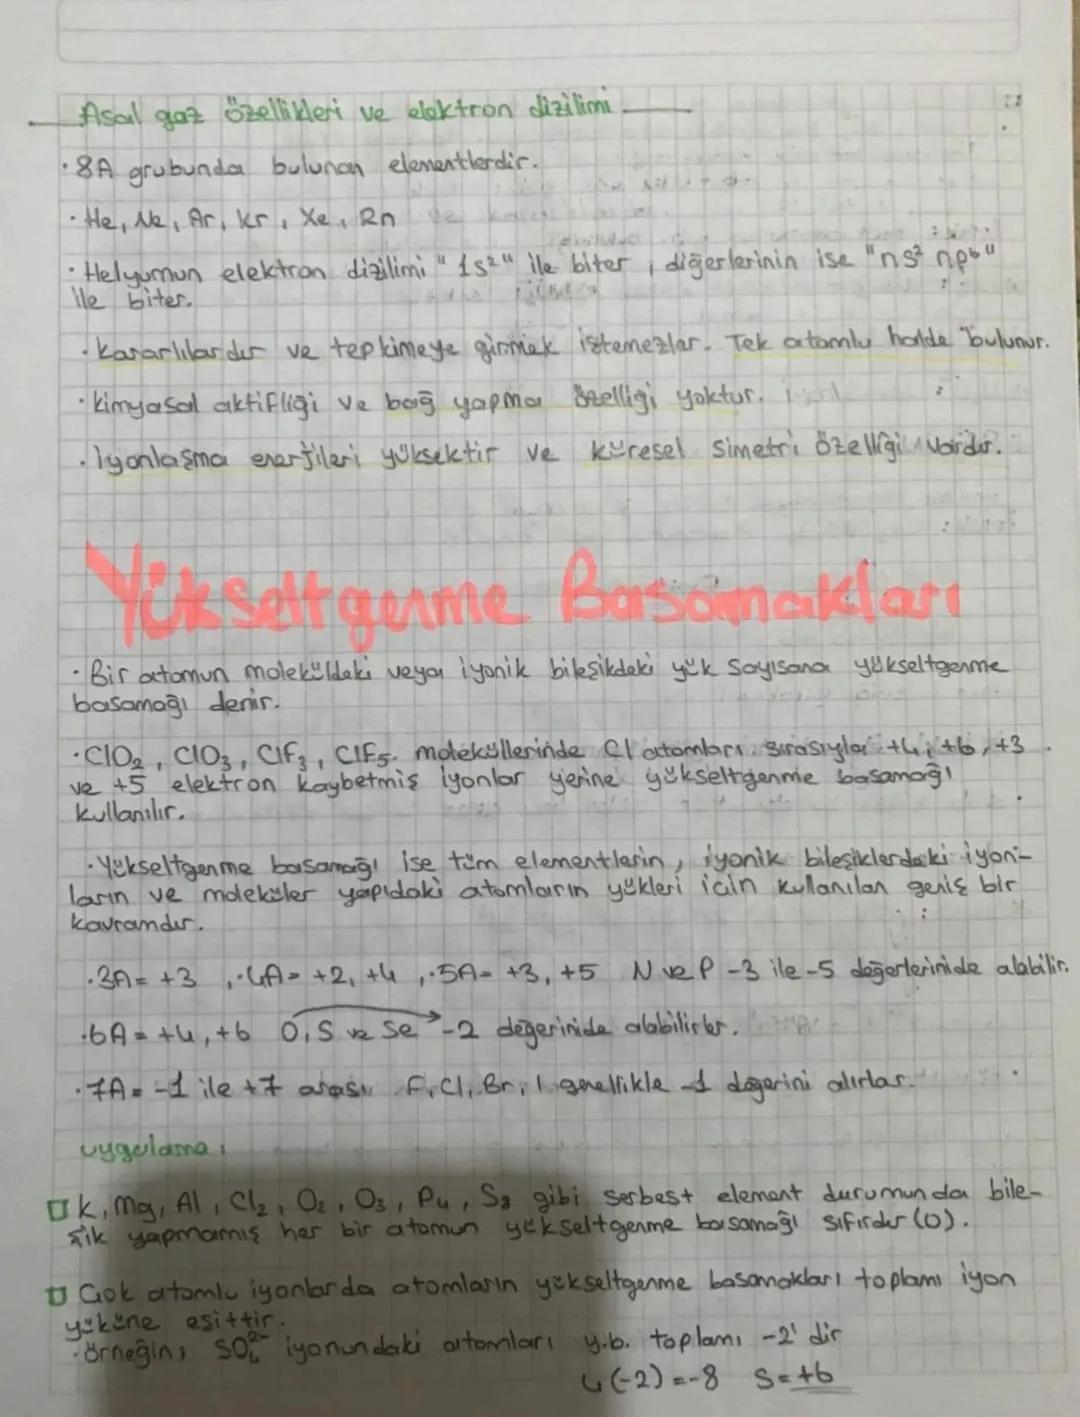 Asal gaz özellikleri ve elektron dizilimi
· 8A grubunda bulunan elementlerdir.
· He, Ne, Ar, Kr, Xe, Rn
· Helyumun elektron dizilimi "1s²" ile biter, diğerlerinin ise "ns² np⁶"
ile biter.
· Kararlılardır ve tepkimeye girmek istemezler. Tek atomlu halde bulunur.
· Kimyasal aktifliği ve bağ yapma özelliği yoktur.
· İyonlaşma enerjileri yüksektir ve küresel simetri özelliği vardır.
Yükseltgenme Basamakları
· Bir atomun moleküldeki veya iyonik bileşikdeki yük sayısına yükseltgenme
basamağı denir.
· ClO₂, ClO₃, ClF₃, ClF₅ moleküllerinde Cl atomları sırasıyla +4, +6, +3
ve +5 elektron kaybetmiş iyonlar yerine yükseltgenme basamağı
kullanılır.
· Yükseltgenme basamağı ise tüm elementlerin, iyonik bileşiklerdeki iyon-
ların ve moleküler yapıdaki atomların yükleri için kullanılan geniş bir
kavramdır.
· 3A = +3, · 4A = +2, +4, · 5A = +3, +5 N ve P -3 ile -5 değerlerinide alabilir.
· 6A = +4, +6 O, S ve Se -2 değerinide alabilirler.
· 7A = -1 ile +7 arası F, Cl, Br, I genellikle -1 değerini alırlar.
uygulama:
K, Mg, Al, Cl₂, O₂, O₃, P₄, S₈ gibi serbest element durumunda bile-
şik yapmamış her bir atomun yükseltgenme basamağı sıfırdır (0).
Çok atomlu iyonlarda atomların yükseltgenme basamakları toplamı iyon
yüküne eşittir.
· Örneğin, SO₄²⁻ iyonundaki atomları y.b. toplamı -2' dir
4(-2) = -8 S = +6